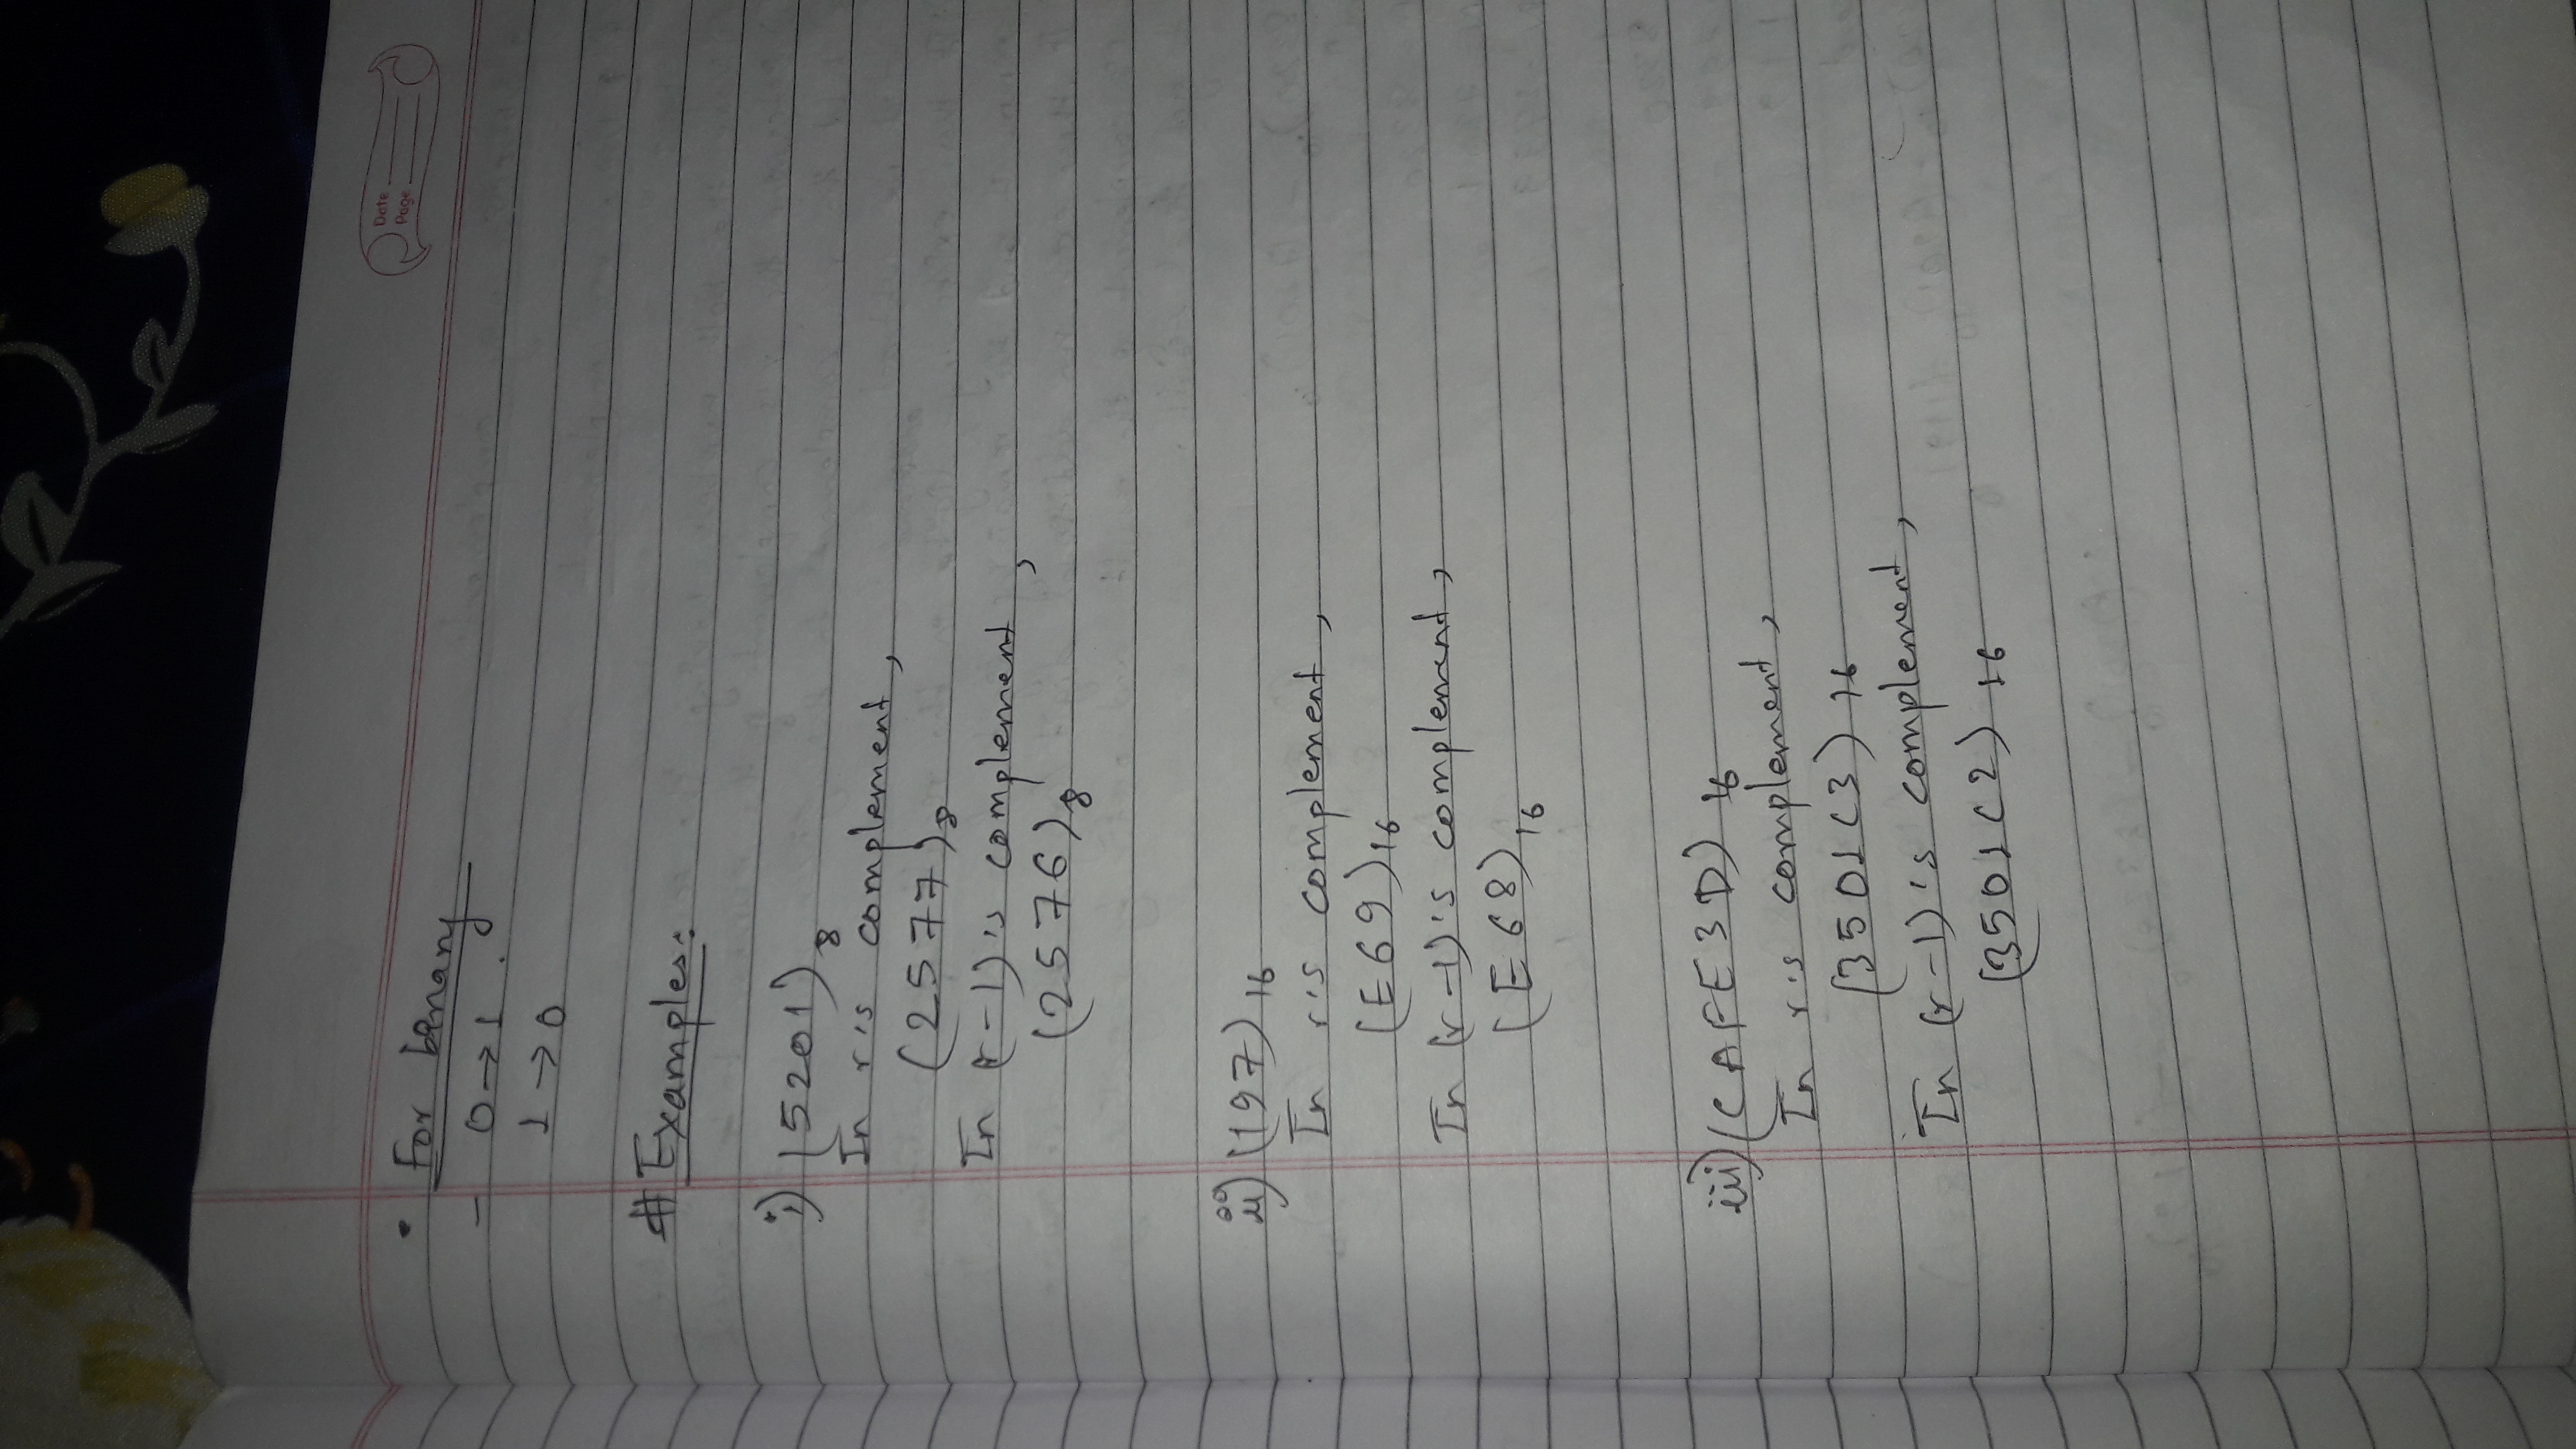 Date
Page
• For binary
- 0 → 1
1 → 0
# Examples:
i) (5201)8
In r's complement,
(2577)8
In (r-1)'s complement,
(2576)8
ii) (197)16
In r's complement,
(E69)16
In (r-1)'s complement,
(E68)16
iii) (CAFE3D)16
In r's complement,
(3501C3)16
In (r-1)'s complement,
(3501C2)16